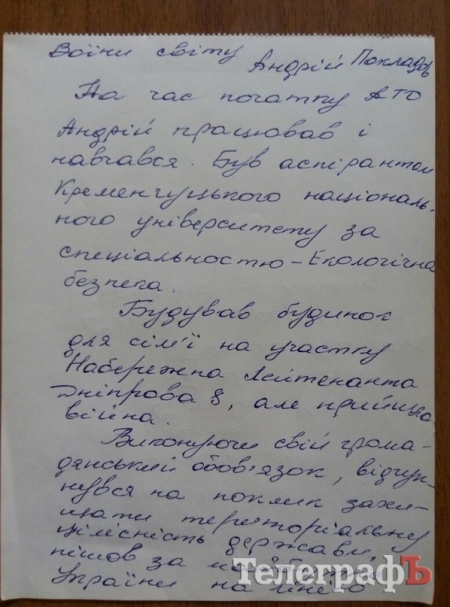 Воїни світу Андрій Покладов
На час початку АТО
Андрій працював і
навчався. Був аспірантом
Кременчуцького національ-
ного університету за
спеціальностю – Екологічна
безпека.
Будував будинок
для сім'ї на участку
Набережна Лейтенанта
Дніпрова 8, але прийшла
війна.
Виконуючи свій грома-
дянський обов'язок, відгук-
нувся на поклик захи-
щати територіальну
цілісність держави,
пішов за
України на
ТелеграфЪ